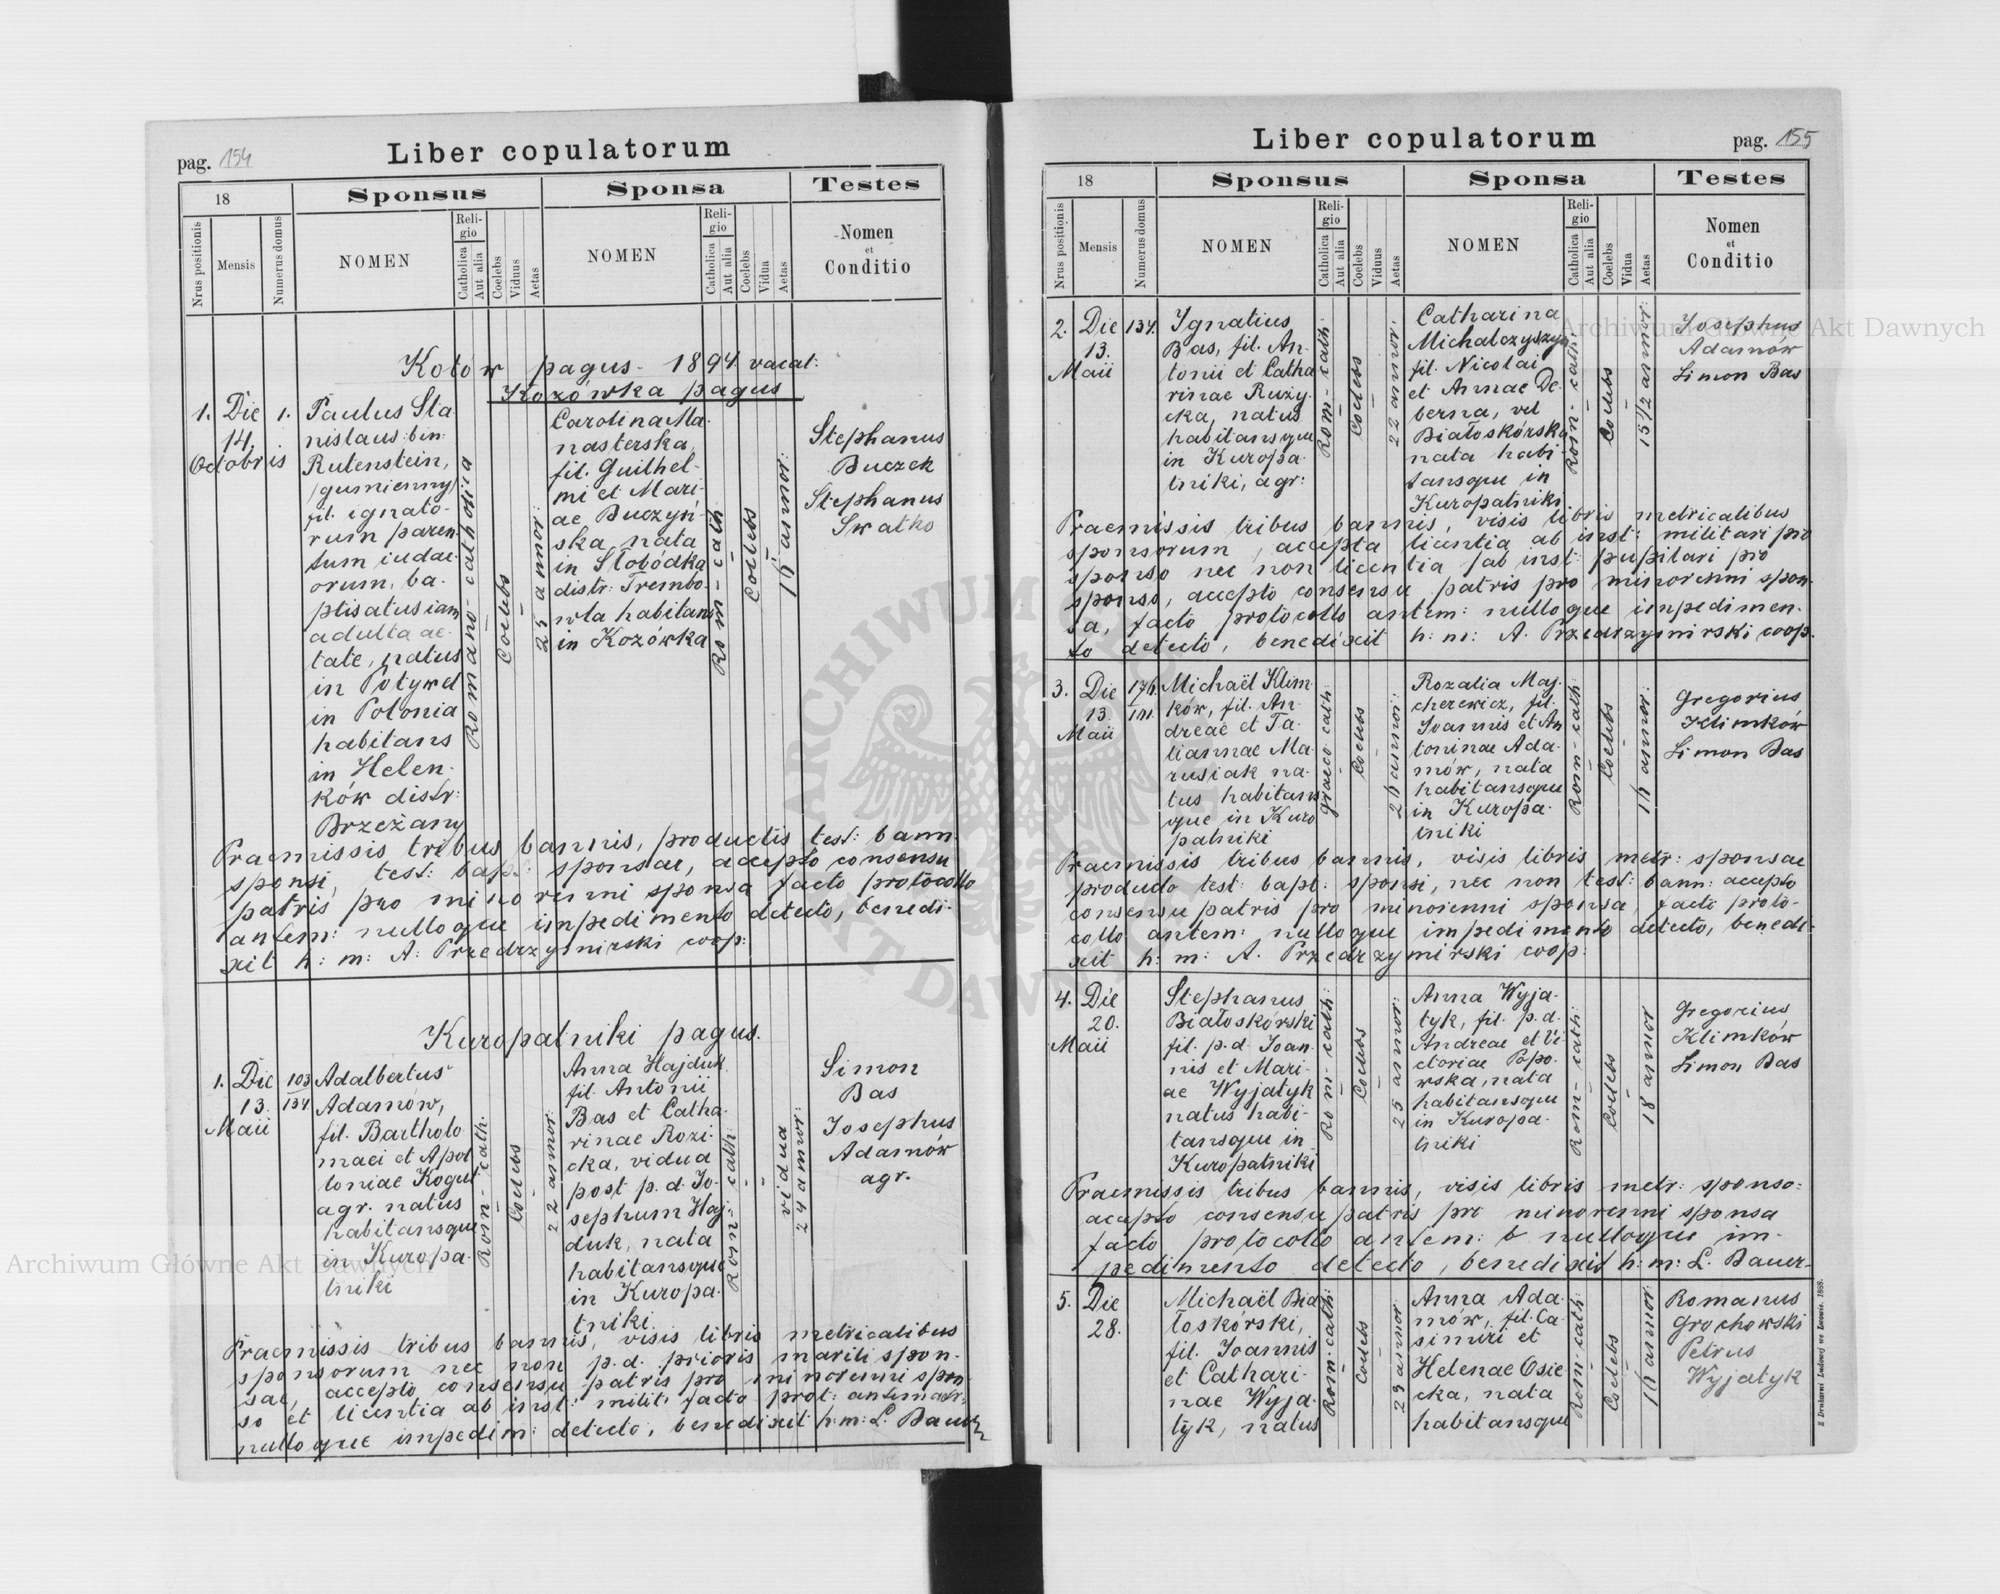 Liber copulatorum
pag. 154
18
Sponsus
Sponsa
Testes
Nrus positionis
Mensis
Numerus domus
NOMEN
Religio
Catholica
Aut alia
Coelebs
Viduus
Aetas
NOMEN
Religio
Catholica
Aut alia
Coelebs
Vidua
Aetas
Nomen
et
Conditio
Kotów pagus - 1894 vacat:
Kozówka pagus
1.
Die
14.
Octobris
1.
Paulus Sta
nislaus bin:
Rutenstein,
/gumienny/
fil. ignato-
rum paren
tum iudae-
orum, ba-
ptisatus iam
adulta ae-
tate, natus
in Potywel
in Polonia
habitans
in Helen-
ków distr:
Brzeżany
Romano-catholica
Coelebs
25 annor:
Carolina Ma
nasterska,
fil. Guilhel-
mi et Mari-
ae Buczyń-
ska, nata
in Słobódka
distr: Trembo-
wla habitans
in Kozówka
Rom-cath
Coelebs
19 annor:
Stephanus
Buczek
Stephanus
Swatko
Praemissis tribus bannis, productis test: bann.
sponsi, test: bapt: sponsae, accepto consensu
patris pro minorenni sponsa facto protocollo
antem: nulloque impedimento detecto, benedi-
xit h: m: A: Przedrzymirski coop:
Kuropatniki pagus.
1.
Die
13.
Maii
103
134
Adalbertus
Adamów,
fil. Bartholo
maei et Apol
loniae Kogut
agr. natus
habitansque
in Kuropa-
tniki
Rom-cath.
Coelebs
22 annor:
Anna Hajduk
fil. Antonii
Bas et Catha-
rinae Rozi-
cka, vidua
post p. d. Jo-
sephum Haj-
duk, nata
habitansque
in Kuropa-
tniki.
Rom-cath:
vidua
24 annor:
Simon
Bas
Josephus
Adamów
agr.
Praemissis tribus bannis, visis libris metricalibus
sponsorum nec non p. d. prioris mariti spon-
sae, accepto consensu patris pro minorenni spon-
so et licentia ab inst: milit: facto prot: antema
nulloque impedim: detecto, benedixit h: m: L. Bauer
Liber copulatorum
pag. 155
18
Sponsus
Sponsa
Testes
Nrus positionis
Mensis
Numerus domus
NOMEN
Religio
Catholica
Aut alia
Coelebs
Viduus
Aetas
NOMEN
Religio
Catholica
Aut alia
Coelebs
Vidua
Aetas
Nomen
et
Conditio
2.
Die
13.
Maii
134.
Ignatius
Bas, fil. An-
tonii et Catha
rinae Ruzy-
cka, natus
habitansque
in Kuropa-
tniki, agr:
Rom-cath:
Coelebs
22 annor:
Catharina
Michalczyszyn
fil. Nicolai
et Annae De-
berna, vel
Białoskórska
nata habi-
tansque in
Kuropatniki
Rom-cath:
Coelebs
15 1/2 annor:
Josephus
Adamów
Simon Bas
Praemissis tribus bannis, visis libris metricalibus
sponsorum, accepta licentia ab inst: militari pro
sponso nec non licentia ab inst: pupilari pro
sponso, accepto consensu patris pro minorenni spon-
sa, facto protocollo antem: nulloque impedimen-
to detecto, benedixit h: m: A. Przedrzymirski coop.
3.
Die
13
Maii
Michaël Klim
ków, fil. An-
dreae et Ta-
tiannae Ma-
rusiak na-
tus habitans
que in Kuro
patniki
graeco cath:
Coelebs
26 annor:
Rozalia Maj-
cherewicz, fil.
Joannis et An
toninae Ada-
mów, nata
habitansque
in Kuropa-
tniki
Rom-cath:
Coelebs
16 annor:
Gregorius
Klimków
Simon Bas
Praemissis tribus bannis, visis libris metr: sponsae
producto test: bapt: sponsi, nec non test: bann: accepto
consensu patris pro minorenni sponsa, facto proto-
collo antem: nulloque impedimento detecto, benedi-
xit h: m: A. Przedrzymirski coop:
4.
Die
20.
Maii
Stephanus
Białoskórski
fil. p. d. Joan-
nis et Mari-
ae Wyjatyk
natus habi-
tansque in
Kuropatniki
Rom-cath:
Coelebs
25 annor:
Anna Wyja-
tyk, fil. p. d.
Andreae et Vi
ctoriae Popo-
wska, nata
habitansque
in Kuropa-
tniki
Rom-cath:
Coelebs
18 annor
Gregorius
Klimków
Simon Bas
Praemissis tribus bannis, visis libris metr: sponso:
accepto consensu patris pro minorenni sponsa
facto protocollo antem: nulloque im-
pedimento detecto, benedixit h: m: L. Bauer-
5.
Die
28.
Michaël Bia
łoskórski,
fil. Joannis
et Cathari-
nae Wyja-
tyk, natus
Rom-cath:
Coelebs
29 annor
Anna Ada-
mów, fil. Ca-
simiri et
Helenae Osie
cka, nata
habitansque
Rom-cath:
Coelebs
16 annor:
Romanus
Grochowski
Petrus
Wyjatyk
Z Drukarni Ludowej we Lwowie. 1888.
Archiwum Główne Akt Dawnych
Archiwum Główne Akt Dawnych
ARCHIWUM GŁÓWNE AKT DAWNYCH